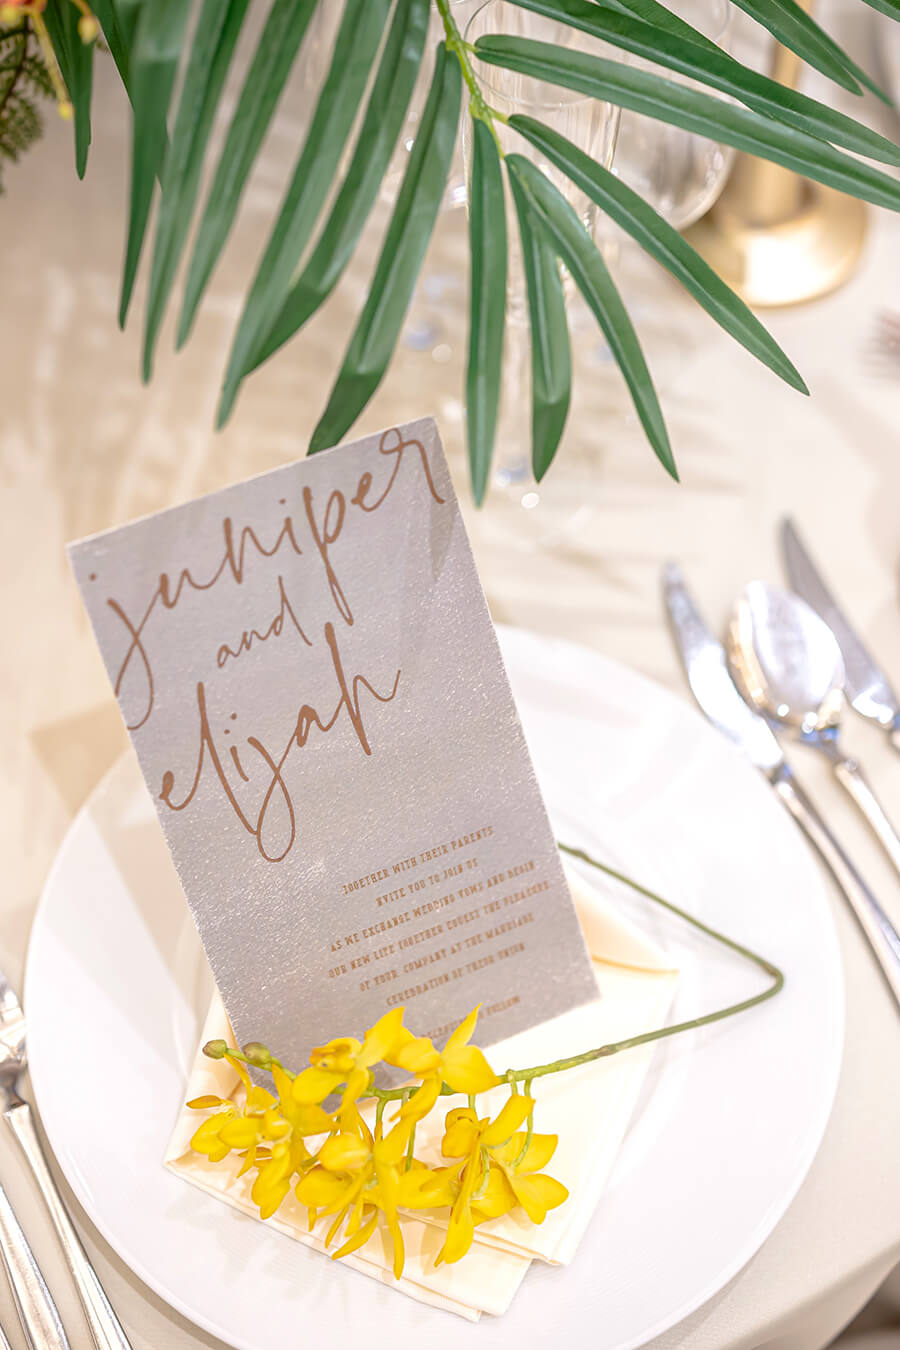 juniper
and
elijah
TOGETHER WITH THEIR PARENTS
NVITE YOU TO JOIN US
AS WE EXCHANGE WEDDING VOWS AND BEGIN
OUR NEW LIFE TOGETHER QUEST THE PLEASURE
OF YOUR COMPANY AT THE MARRIAGE
CELEBRATION OF THEOR UNION
FOLLOW